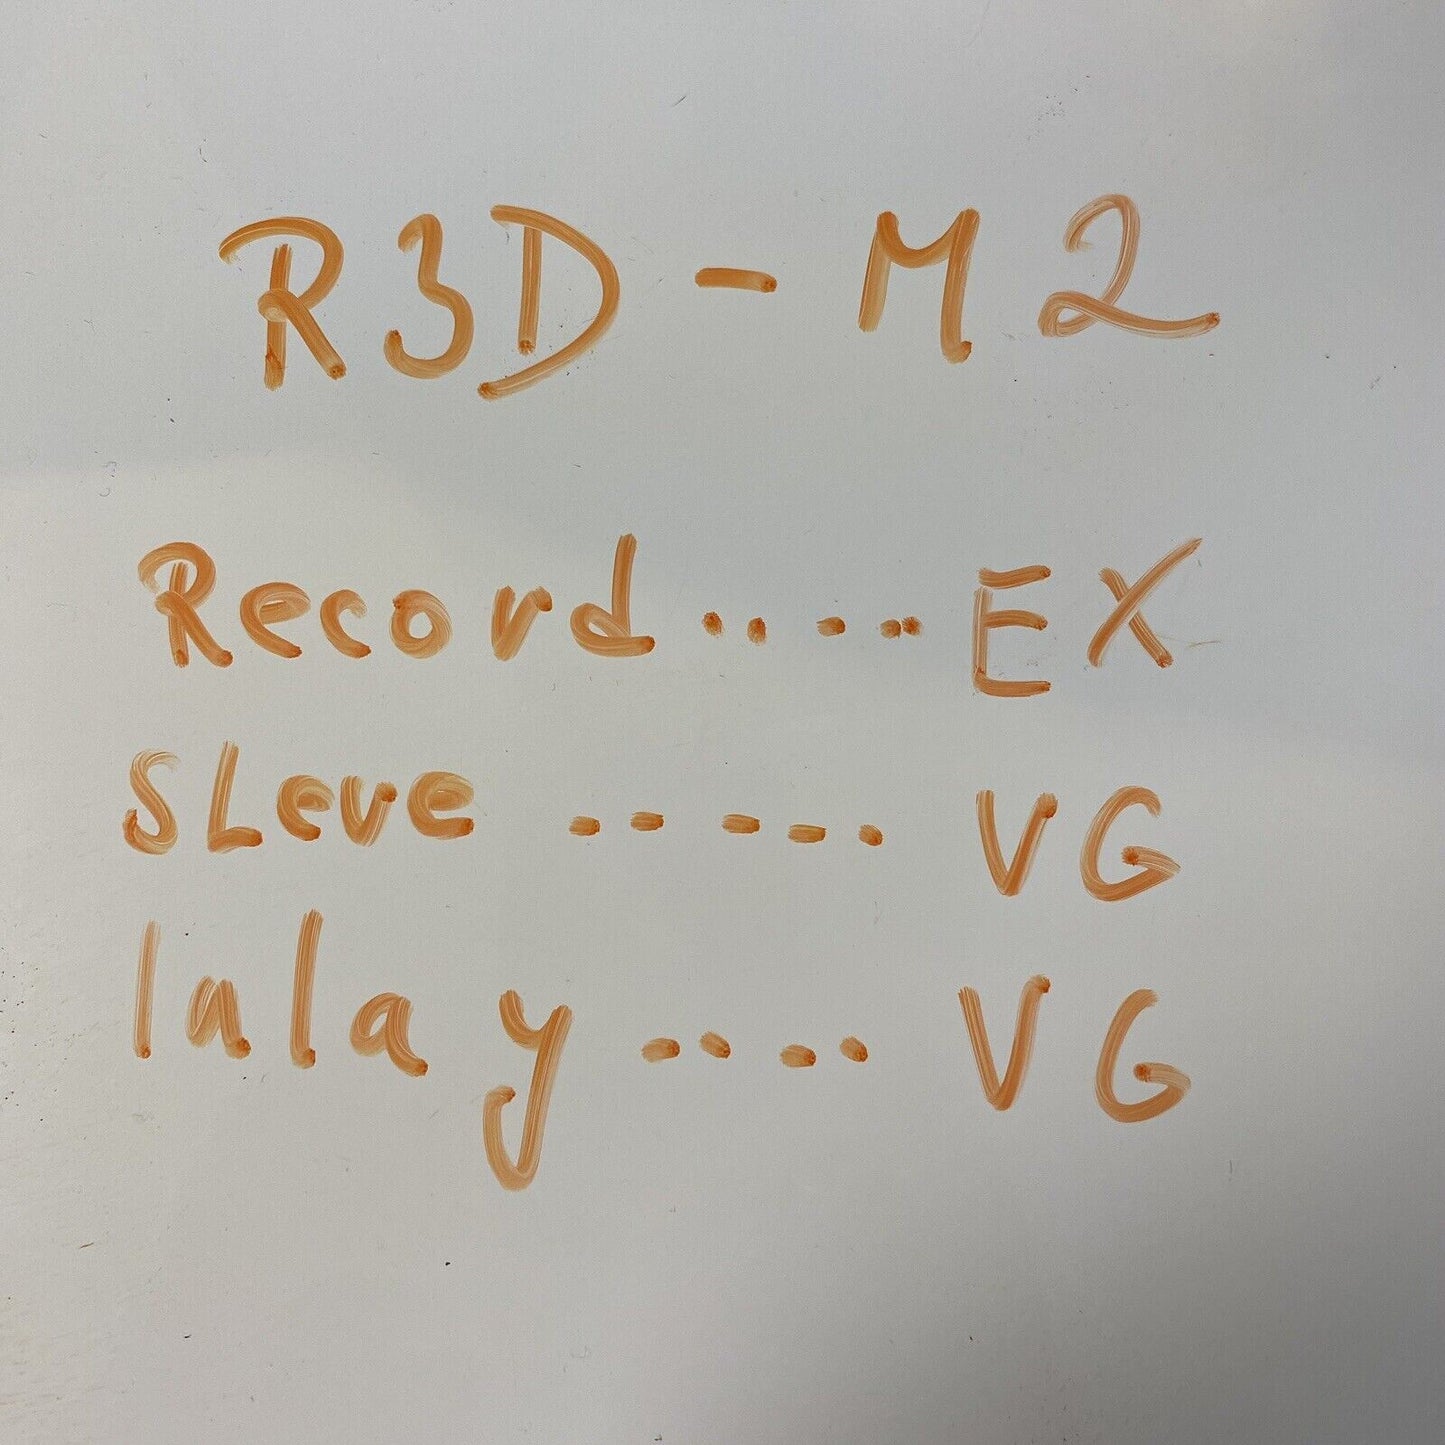 R3D - M2
Record ..... EX
SLeve ..... VG
lnlay .... VG